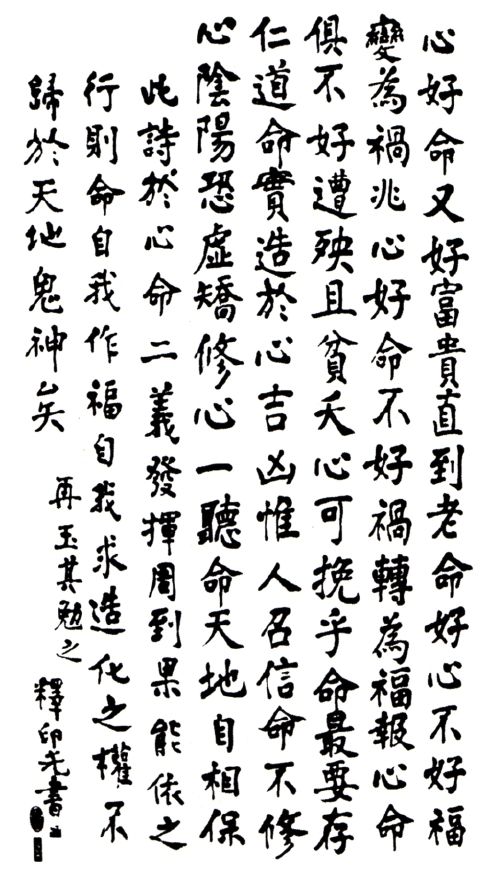 心好命又好富貴直到老命好心不好福
變為禍兆心好命不好禍轉為福報心命
俱不好遭殃且貧夭心可挽乎命最要存
仁道命實造於心吉凶惟人召信命不修
心陰陽恐虛矯修心一聽命天地自相保
此詩於心命二義發揮周到果能依之
行則命自我作福自我求造化之權不
歸於天地鬼神矣
再玉其勉之
釋印光書